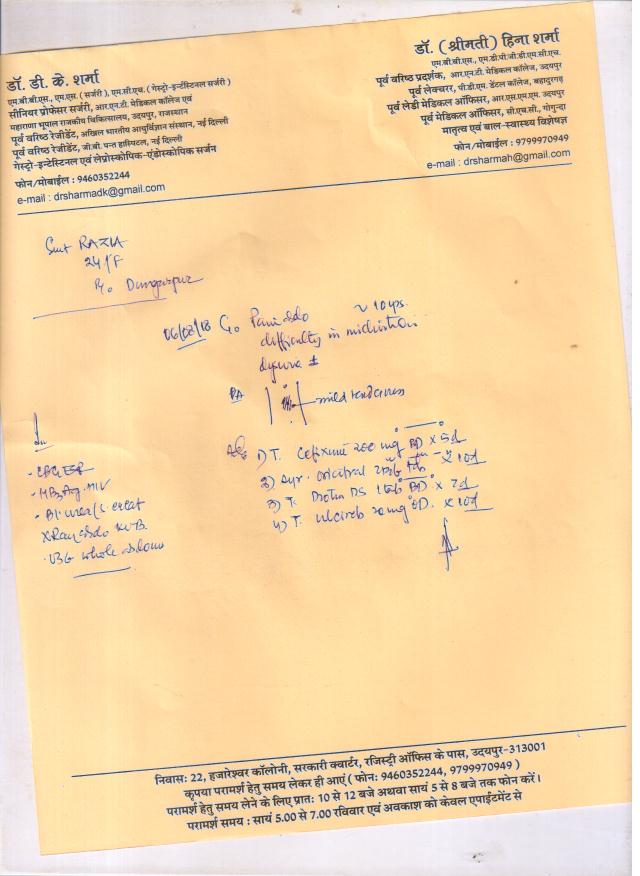 डॉ. डी. के. शर्मा
एम.बी.बी.एस., एम.एस. (सर्जरी), एम.सी.एच. (गेस्ट्रो-इन्टेंस्टिनल सर्जरी)
सीनियर प्रोफेसर सर्जरी, आर.एन.टी. मेडिकल कॉलेज एवं
महाराणा भूपाल राजकीय चिकित्सालय, उदयपुर, राजस्थान
पूर्व वरिष्ठ रेजीडेंट, अखिल भारतीय आयुर्विज्ञान संस्थान, नई दिल्ली
पूर्व वरिष्ठ रेजीडेंट, जी.बी. पन्त हास्पिटल, नई दिल्ली
गेस्ट्रो-इन्टेस्टिनल एवं लेप्रोस्कोपिक-एंडोस्कोपिक सर्जन
फोन/मोबाईल : 9460352244
e-mail : drsharmadk@gmail.com
डॉ. (श्रीमती) हिना शर्मा
एम.बी.बी.एस., एम.डी.पी.जी.डी.एम.सी.एच.
पूर्व वरिष्ठ प्रदर्शक, आर.एन.टी. मेडिकल कॉलेज, उदयपुर
पूर्व लेक्चरर, पी.डी.एम. डेंटल कॉलेज, बहादुरगढ़
पूर्व लेडी मेडिकल ऑफिसर, आर.एस.एम.एम. उदयपुर
पूर्व मेडिकल ऑफिसर, सी.एच.सी., गोगुन्दा
मातृत्व एवं बाल-स्वास्थ्य विशेषज्ञ
फोन/मोबाईल : 9799970949
e-mail : drsharmah@gmail.com
Smt RAZIA
24/F
R/o Dungarpur
06/08/18 C/o Pain abdo
difficulty in micturition
dysuria ±
PA mild tenderness
1) T. Cefixime 200 mg BD × 5d
2) Syr.
3) T. DS 1 tab BD × 7d
4) T. 20 mg OD × 10d
- CBC ESR
- HBsAg. HIV
- Bl. urea/S. creat
X Ray abdo KUB
- USG whole abdomen
निवास: 22, हजारेश्वर कॉलोनी, सरकारी क्वार्टर, रजिस्ट्री ऑफिस के पास, उदयपुर-313001
कृपया परामर्श हेतु समय लेकर ही आएं ( फोन: 9460352244, 9799970949 )
परामर्श हेतु समय लेने के लिए प्रात: 10 से 12 बजे अथवा सायं 5 से 8 बजे तक फोन करें।
परामर्श समय : सायं 5.00 से 7.00 रविवार एवं अवकाश को केवल एपाईंटमेंट से